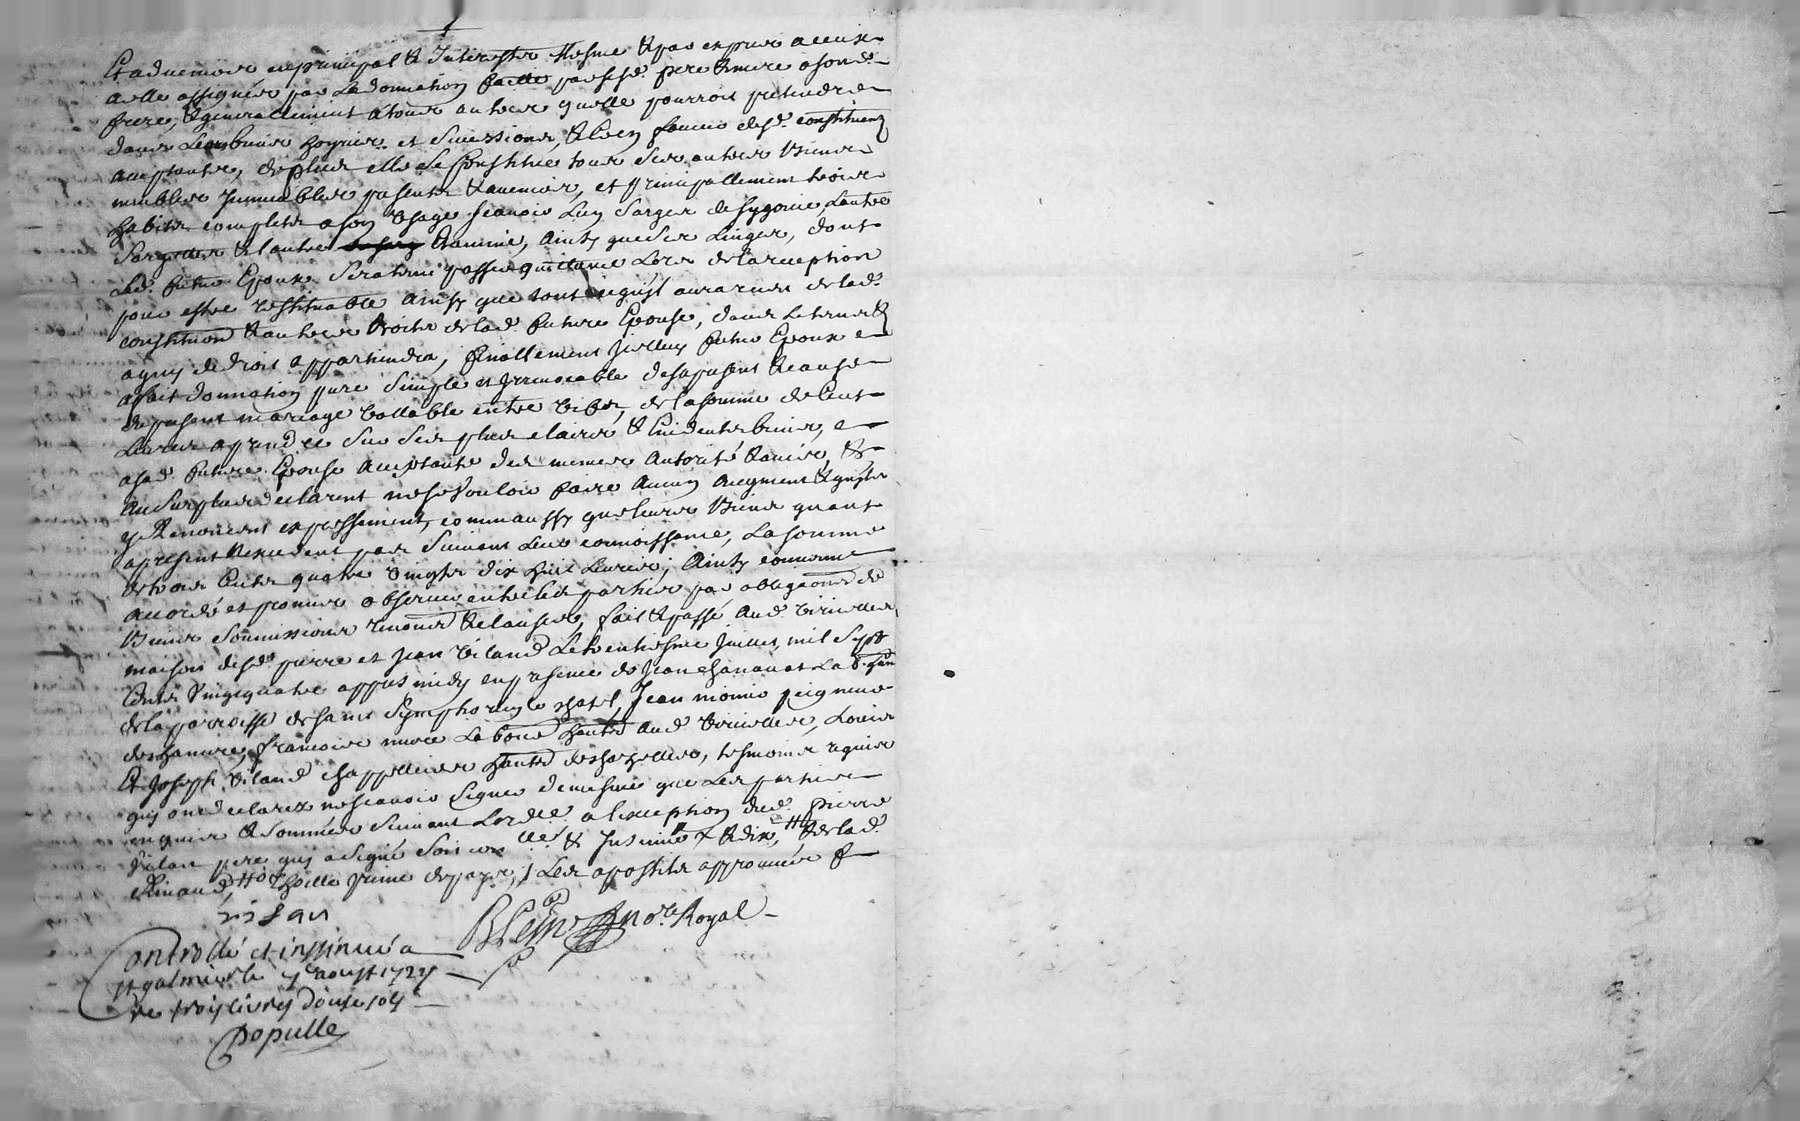 Et aduenir en principal & Interests Mesme & par expres a ceux
a elle assignés par La donnation faitte par sesd. pere & mere a sond.
frere, & generallement a tous autres quelle pourroit pretendre
dans Leurs biens hoyries et successions, & en faueur desd. constituens
acceptants, de plus elle se Constitue tous ses autres Biens
meubles Jmmeubles presents & auenir, et principallement trois
habits complets a son Vsage scauoir L'un sarge de sygouie, L'autre
sargette & L'autre Etamine, Ainsy que ses Linges, dont
Led. futur Epoux sera tenu passer quittance Lors de la reception
pour estre restituable Ainsy que tout ce qu'il aura receu de lad.
constitution & autres droits de lad. future Epouse, dans Le temps &
a qui de droit appartiendra, finallement Jcelluy futur Epoux
a fait donnation pure simple et Jrreuocable desapresent & a cause
du present mariage Vallable entre Vifs, de la somme de Cent
Liures a prendre sur ses plus clairs & Euidents biens, a
a sad. future Epouse acceptante des mesmes Autorité & auis, &
au surplus declarent ne se Vouloir faire Aucun Augment & quils
y Renoncent expressement, comm aussy que leurs Biens quant
a present n'excedent pas suiuant Leur connoissance, La somme
de trois Cents quatre Vingts dix huit Liures, Ainsy conuenu
accordé et promis obseruer entre les parties par obligaons de
Biens soumissions renons & clauses, fait & passé Aud. Viricelles
maison desd. pierre et Jean Viland Le trentiesme Juillet, mil sept
Cents Vingt quatre appres midy en presence de Jean
de la parroisse de saint Symphorien le chatel, Jean peigneur
de chanure, francois labour. hant. Aud. Viricelles, Louis
Et Joseph Viland chappelliers hants de chazelles, tesmoins requis
qui ont declarez ne scauoir signer de mesme que Les parties
enquis & sommées suiuant Lord.ce a l'exception dud. pierre
Vilan pere qui a signé
Les apostils approuués
vislan
Controllé et insinué a
st galmier le 7e aoust 1724
re trois livres douse sols
No.re Royal
Populle